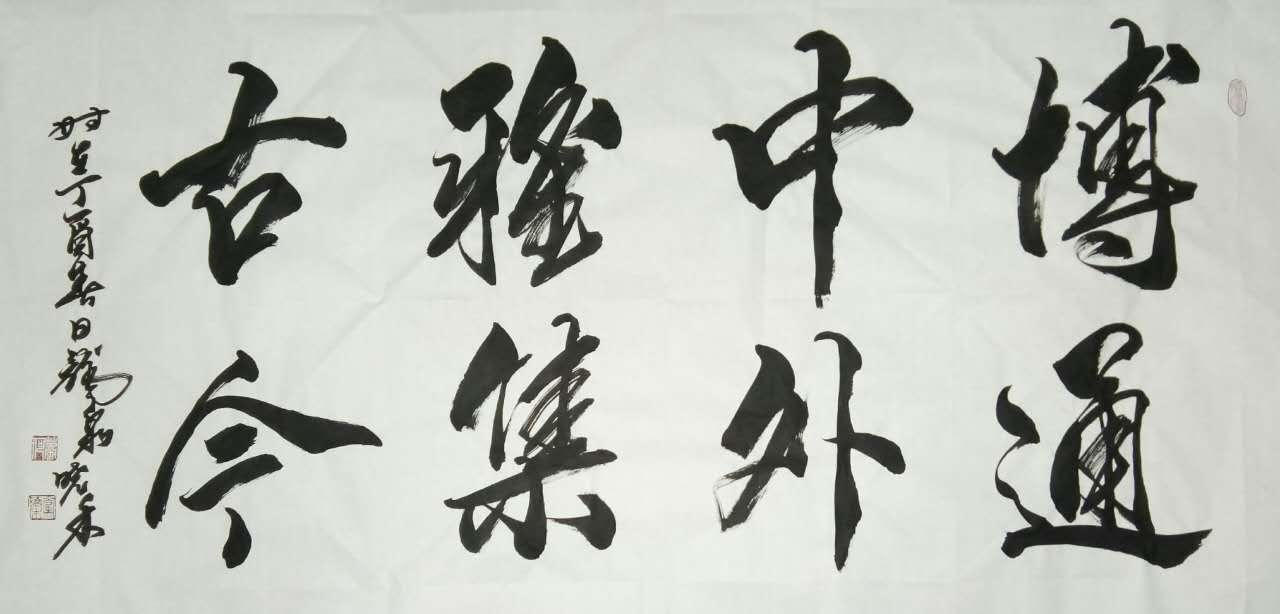 博通
中外
雅集
古今
时在丁酉春日